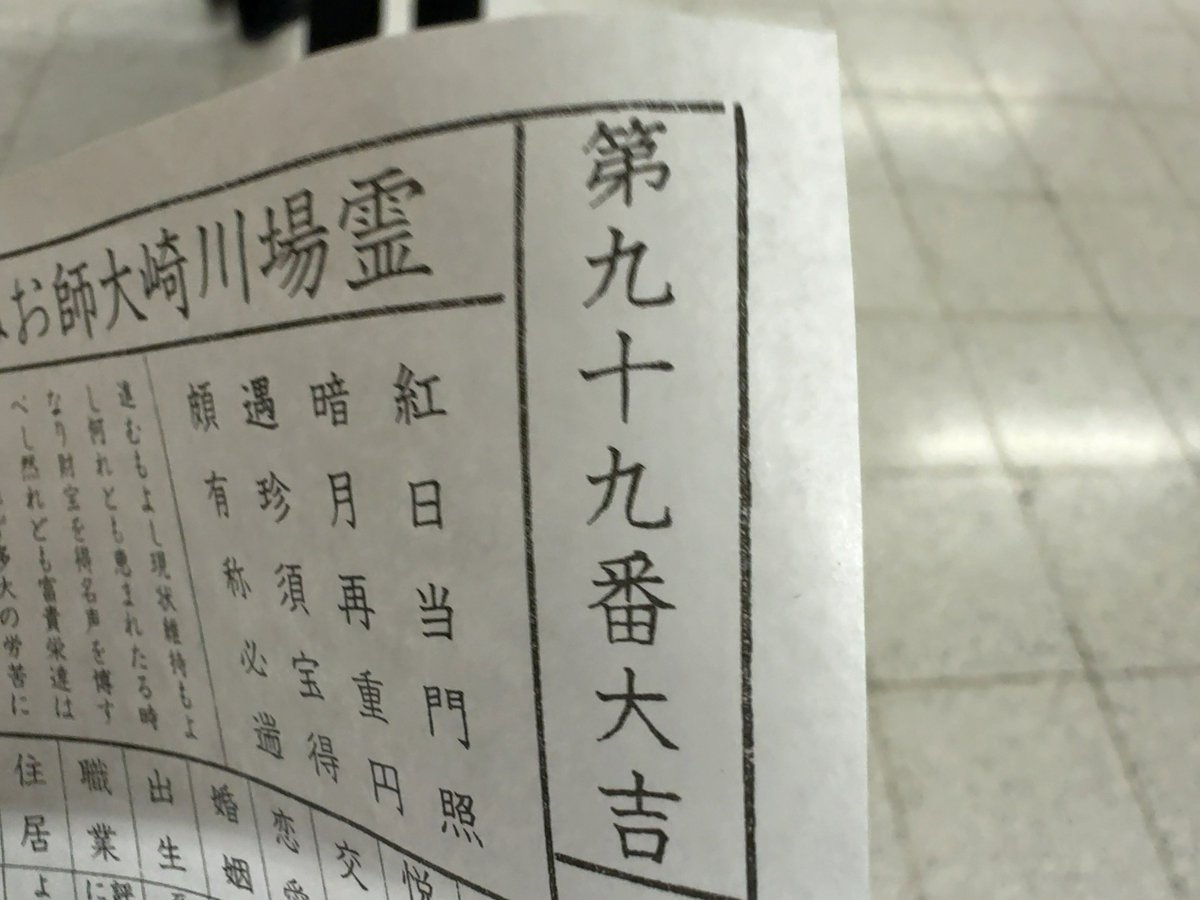 第九十九番大吉
霊場川崎大師お
紅日当門照
暗月再重円
遇珍須宝得
頗有称必遄
進むもよし現状維持もよ
し何れとも恵まれたる時
なり財宝を得名声を博す
べし然れども富貴栄達は
多大の労苦に
悦
交
恋愛
婚姻
出生
職業
住居